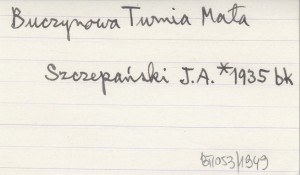 Buczynowa Turnia Mała
Szczepański J.A. *1935 bk
1053/1949